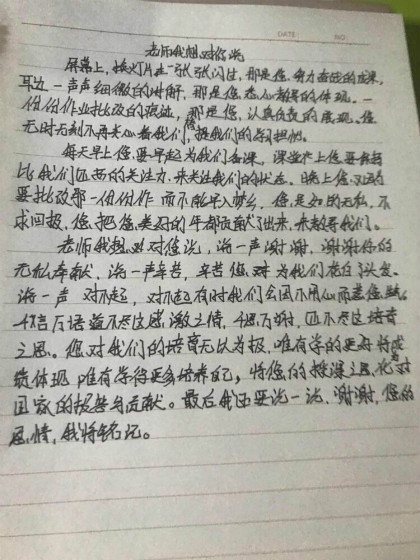 DATE: NO
老师我想对您说
屏幕上,换灯片走一张张闪过,那是您努力备战的成果,
耳边一声声细微的讲解,那是您悉心教导的体现。一
份份作业批改的痕迹,那是您,认真负责的展现。您
无时无刻不再关心着我们,担我们的学习担忧。
每天早上您要早起为我们备课,课堂上您要有
比我们匹西的关注力,来关注我们的状态。晚上您,
要批改那一份份作 而不能早入梦乡,您是如的无私,不
求回报,您把您美好的年都贡献了出来,来教导我们。
老师我想对对您说,海一声谢谢,谢谢你的
无私奉献,海一声辛苦,辛苦您对为我们花白了头发。
海一声 对不起,对不起有时我们会因不用心而惹您
千言万语道不尽这感激之情,千恩万谢,匹不尽这培育
之恩。您对我们的培育无以为报,唯有学的更好将成
绩体现 唯有学得更多培养自己,将您的教深之恩,化为对
国家的报恩与贡献。最后我还要说一说,谢谢,您的
恩情,我将铭记。